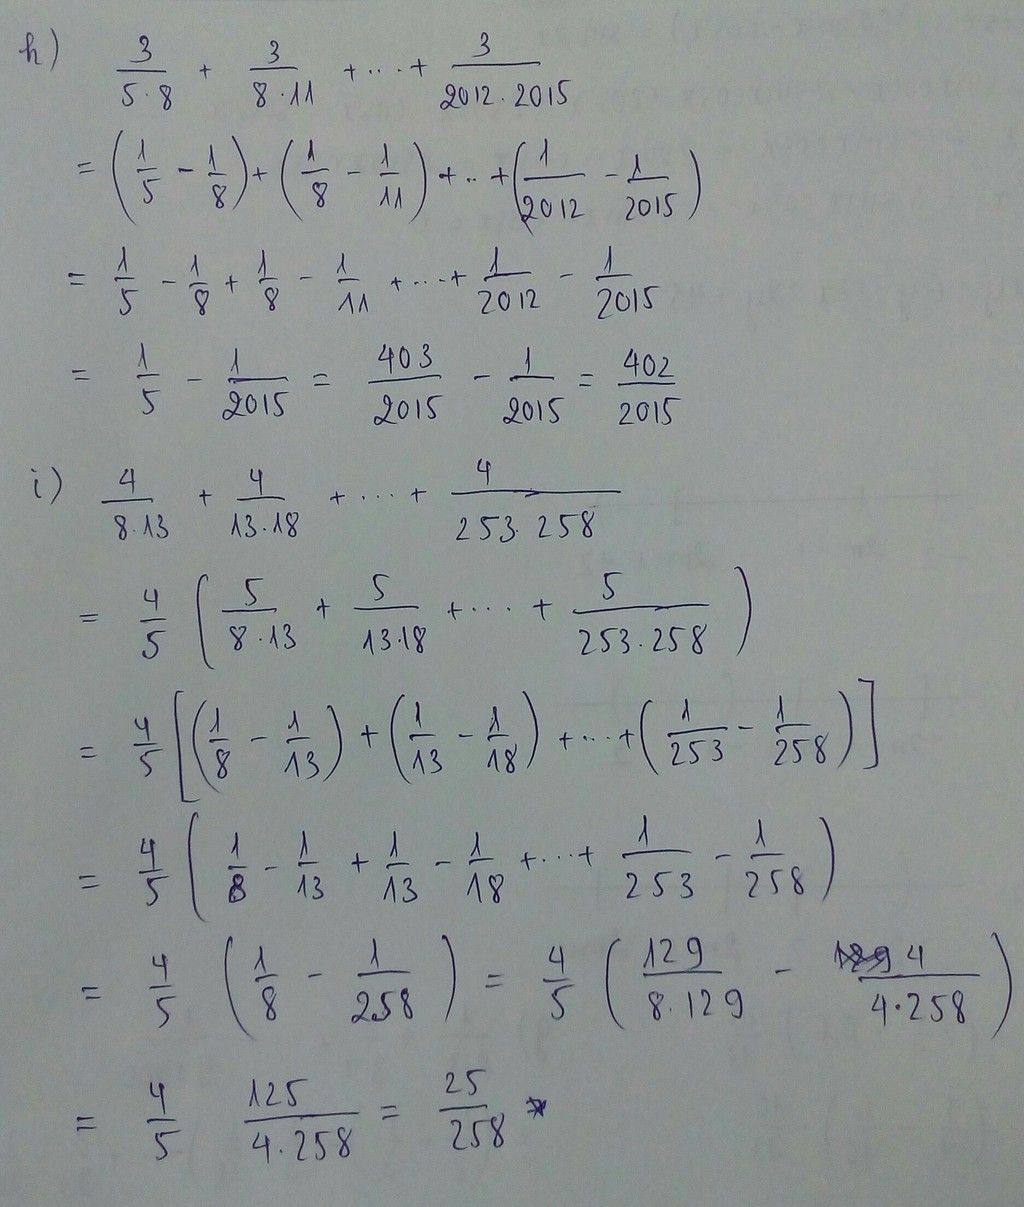 h) 3/(5·8) + 3/(8·11) + ... + 3/(2012·2015)
= (1/5 - 1/8) + (1/8 - 1/11) + .. + (1/2012 - 1/2015)
= 1/5 - 1/8 + 1/8 - 1/11 + ... + 1/2012 - 1/2015
= 1/5 - 1/2015 = 403/2015 - 1/2015 = 402/2015
i) 4/(8·13) + 4/(13·18) + ... + 4/(253·258)
= 4/5 (5/(8·13) + 5/(13·18) + ... + 5/(253·258))
= 4/5 [(1/8 - 1/13) + (1/13 - 1/18) + ... + (1/253 - 1/258)]
= 4/5 (1/8 - 1/13 + 1/13 - 1/18 + ... + 1/253 - 1/258)
= 4/5 (1/8 - 1/258) = 4/5 (129/(8·129) - 4/(4·258))
= 4/5 125/(4·258) = 25/258